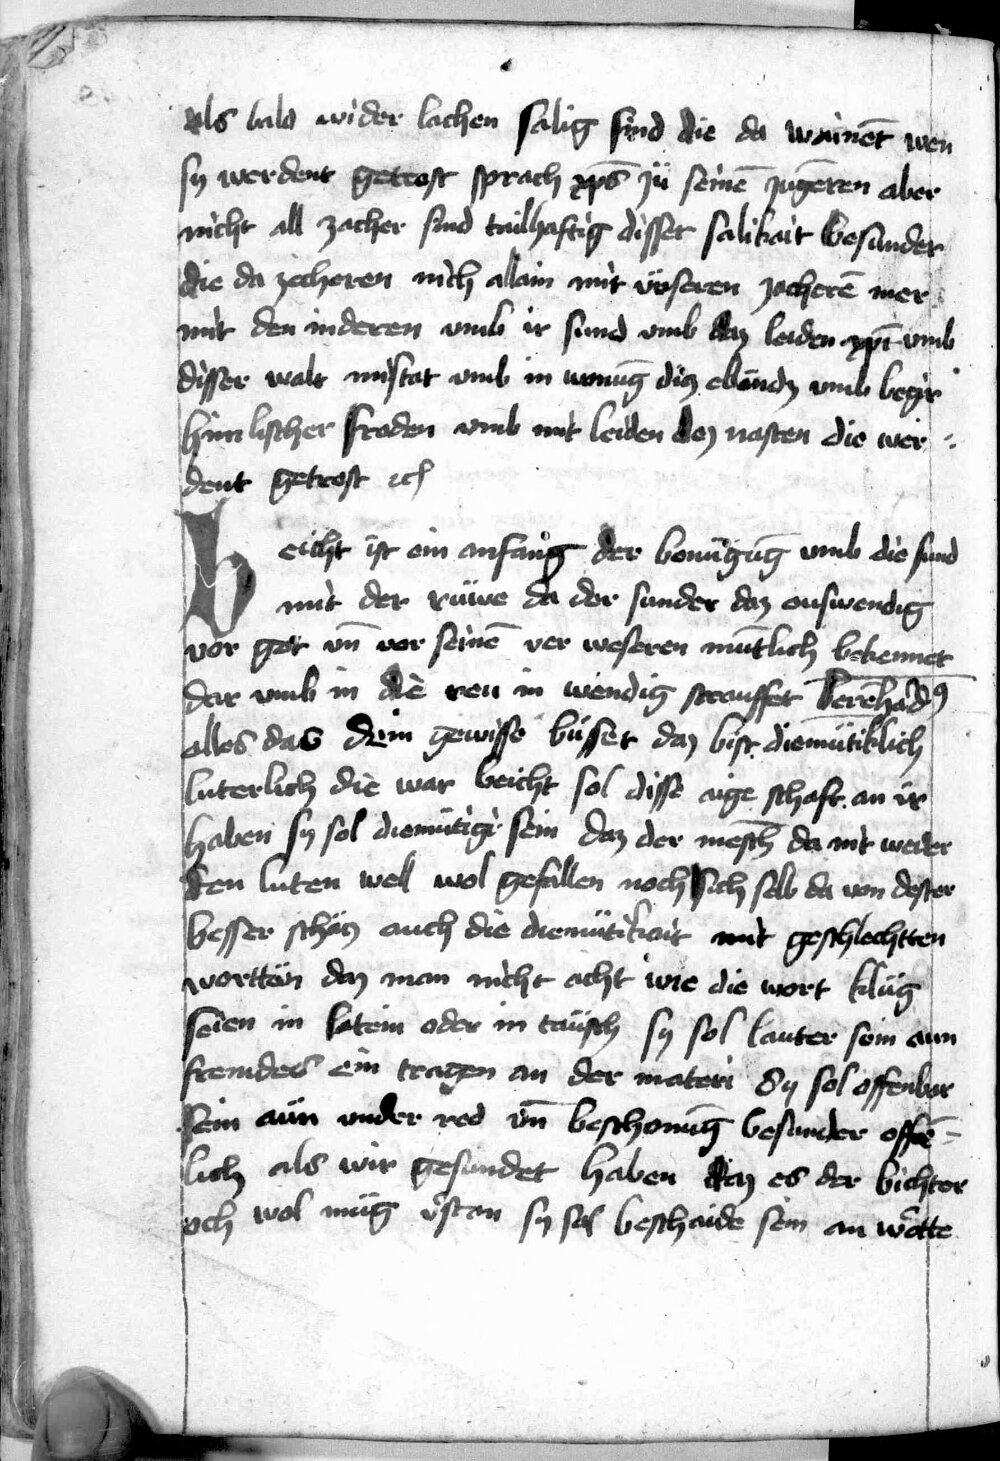 als bald wider lachen salig sind die da wainet wen
sy werdent getrost sprach xp̄s zü seinē jūgeren aber
nicht all zacher sind tailhaftig disser salikait besunder
die da zecheren nich allain mit üsseren zecherē mer
mit den inderen vmb ir sund vmb daz leiden xp̄i vmb
disser walt mistat vmb in wonūg diz elāndz vmb begir
himlischer froden vmb mit leiden dez nasten die wer
dent getrost ⁊c
Beicht ist ein anfang der bonūgūg vmb die sund
mit der rüwe da der sunder daz auswendig
vor got vn̄ vor seinē ver weseren mūtlich bekennet
dar vmb in die reu in wendig strauffet berēhād9
alles das dein gewisse büsset daz bist diemütiklich
luterlich die war beicht sol disse aige schaft an ir
haben sy sol diemütigi sein daz der mēsch da mit weder
den luten well wol gefallen noch sich selb da von dester
besser schäz auch die diemütikait mit geschlechtten
worttän daz man nicht acht wie die wort klüg
seien in latein oder in taüsch sy sol lauter sein aun
fremdes ein tragen an der materi Sy sol offenbar
sein aün vnder red vn̄ beschonūg besunder offē
lich als wir gesundet haben daz es der bichter
och wol müg v̄stan sy sol beschaide sein an